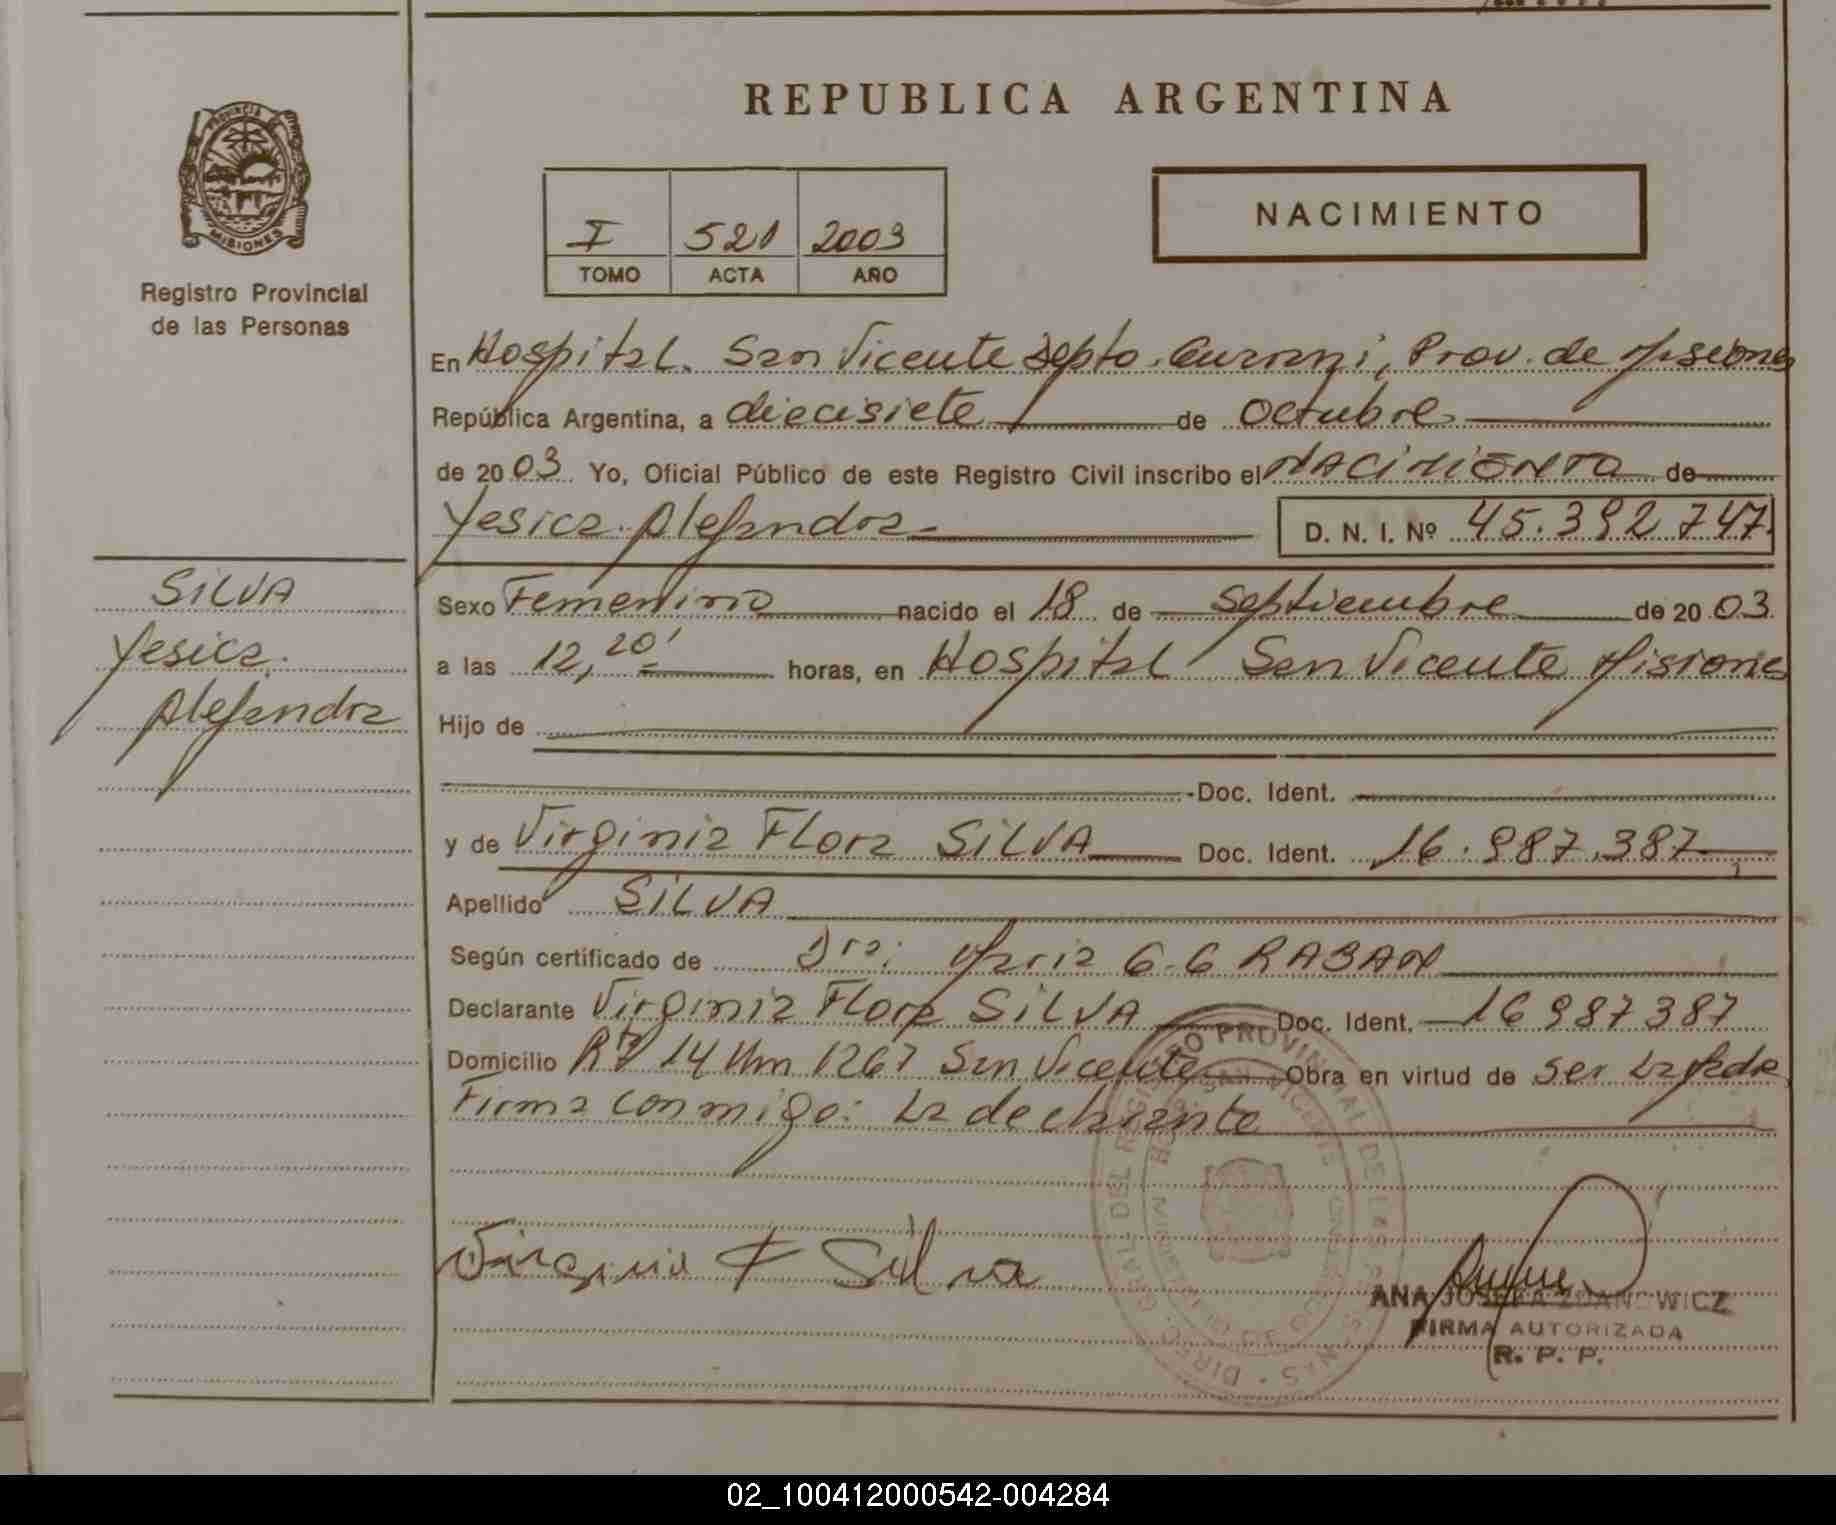 REPUBLICA ARGENTINA
PROVINCIA DE
MISIONES
Registro Provincial
de las Personas
I 521 2003
TOMO ACTA AÑO
NACIMIENTO
En Hospital. San Vicente Depto. Guarani, Prov. de Misiones
República Argentina, a diecisiete de Octubre
de 2003 Yo, Oficial Público de este Registro Civil inscribo el NACIMIENTO de
Yesica Alejandra D. N. I. Nº 45.392747
SILVA
Yesica
Alejandra
Sexo Femenino nacido el 18 de Septiembre de 2003
a las 12,20' horas, en Hospital San Vicente Misiones
Hijo de
Doc. Ident.
y de Virginia Flora SILVA Doc. Ident. 16.987.387
Apellido SILVA
Según certificado de Dra: Maria G. G RABAN
Declarante Virginia Flora SILVA Doc. Ident. 16987387
Domicilio Rta 14 Km 1267 San Vicente Obra en virtud de ser la Madre
Firma conmigo: La declarante
Virginia F Silva
ANA JOSEFA ZDANOWICZ
FIRMA AUTORIZADA
R. P. P.
02_100412000542-004284